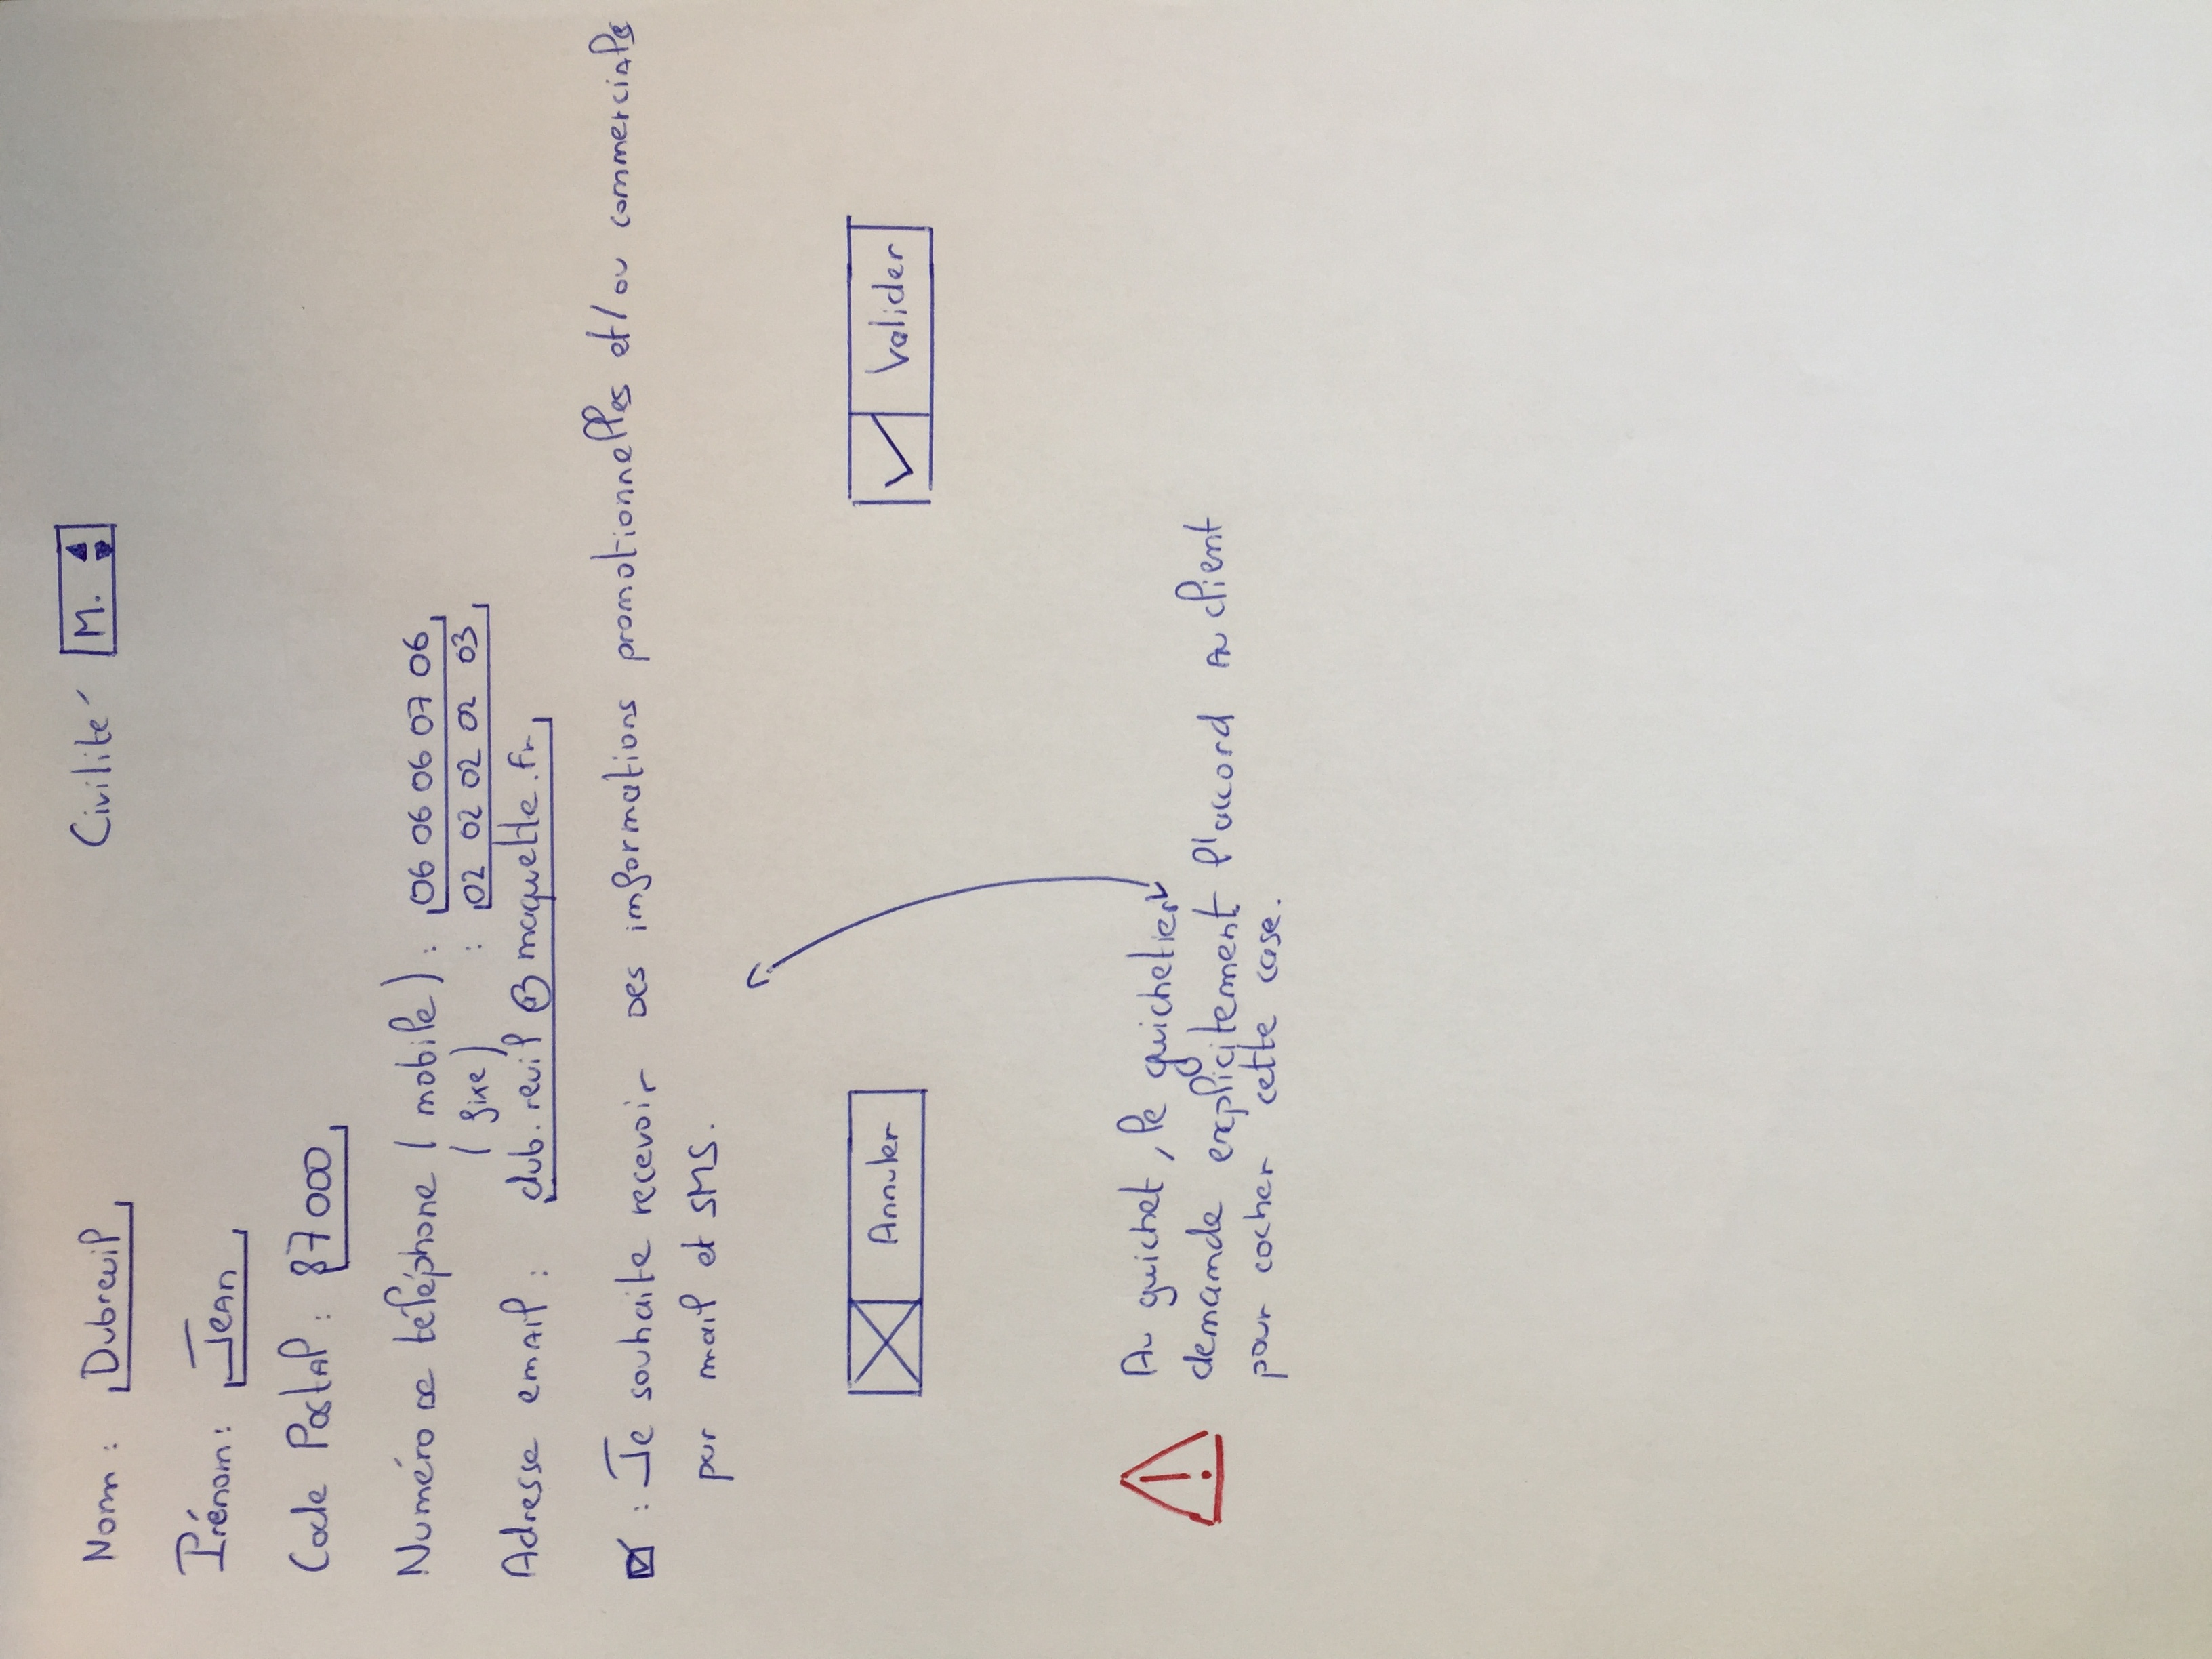 Nom : Dubreuil Civilité M.
Prénom : Jean
Code Postal : 87000
Numéro de téléphone (mobile) : 06 06 06 07 06
(fixe) : 02 02 02 02 03
Adresse email : dub.reuil@maquette.fr
: Je souhaite recevoir des informations promotionnelles et/ou commerciales
par mail et SMS.
Annuler Valider
Au guichet, le guichetier
demande explicitement l'accord au client
pour cocher cette case.